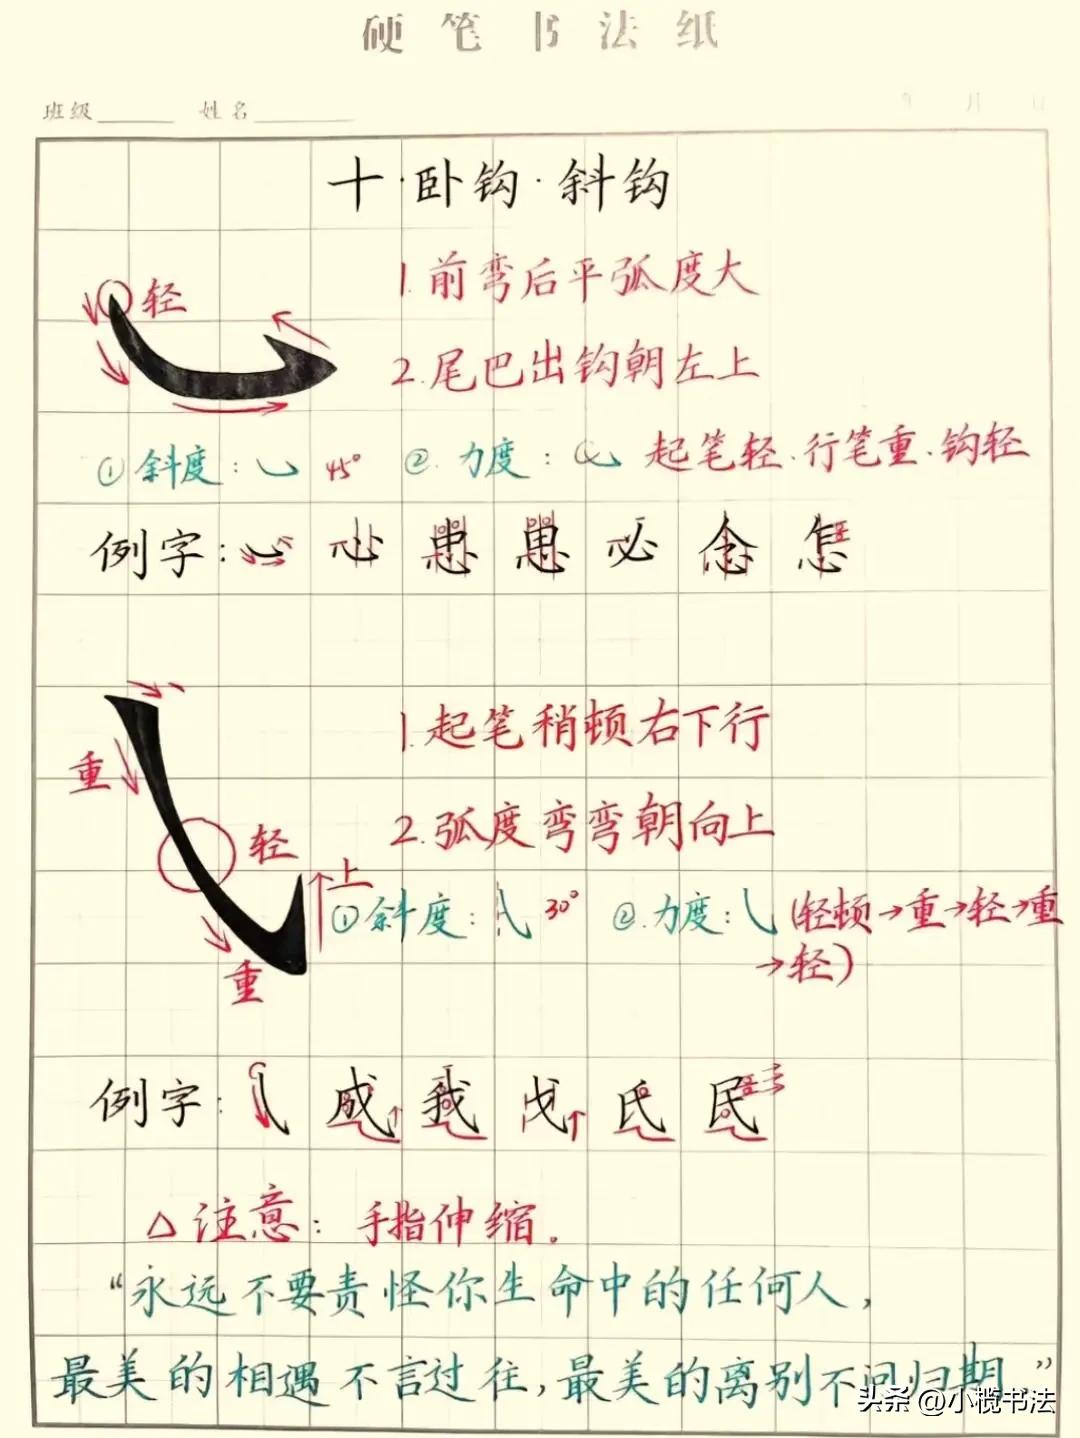 硬笔书法纸
班级 姓名 年 月 日
十·卧钩·斜钩
轻
1.前弯后平弧度大
2.尾巴出钩朝左上
①斜度: 45° ②.力度: 起笔轻.行笔重.钩轻
例字: 心 患 愚 必 念 怎
1.起笔稍顿右下行
重
2.弧度弯弯朝向上
轻
上
①斜度: 30° ②.力度: (轻顿→重→轻→重
→轻)
重
例字: 成 我 戈 氏 民
△注意: 手指伸缩.
“永远不要责怪你生命中的任何人,
最美的相遇不言过往,最美的离别不问归期.”
头条 @小榄书法